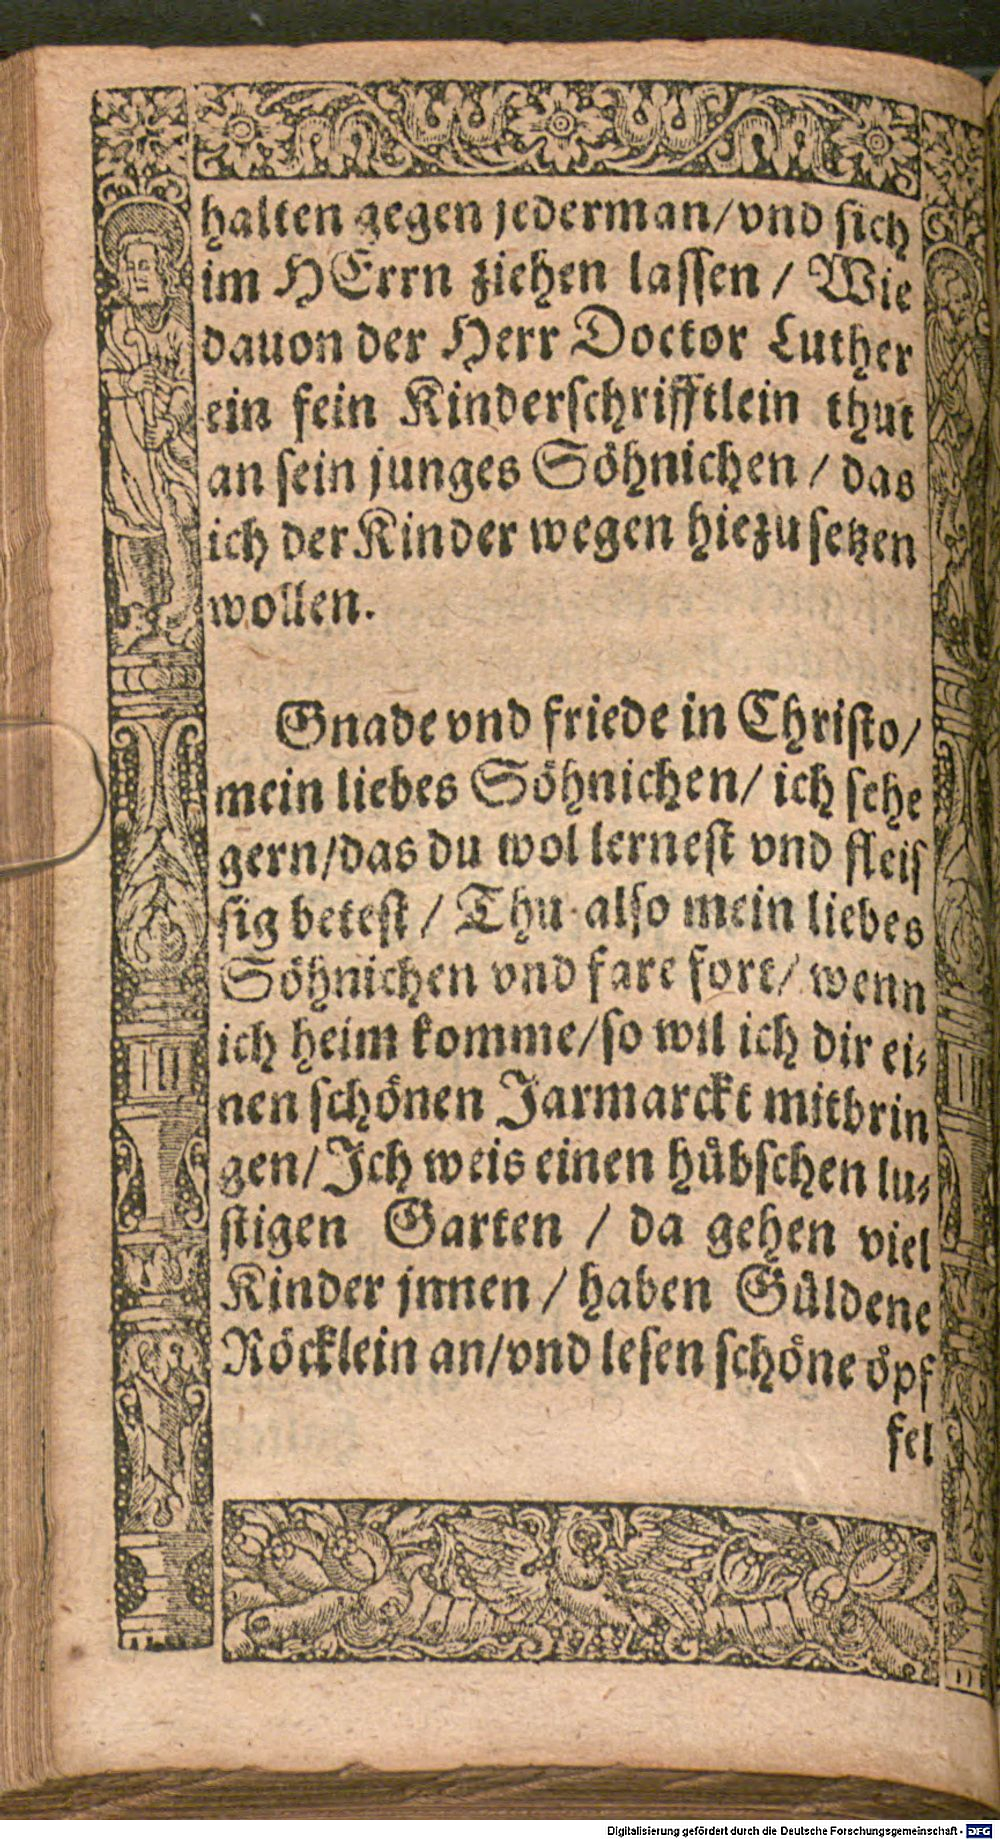 halten gegen jederman/vnd sich
im HErrn ziehen lassen / Wie
dauon der Herr Doctor Luther
ein fein Kinderschrifftlein thut
an sein junges Söhnichen / das
ich der Kinder wegen hiezu setzen
wollen.
Gnade vnd friede in Christo/
mein liebes Söhnichen/ ich sehe
gern/das du wol lernest vnd fleis
sig betest / Thu also mein liebes
Söhnichen vnd fare fort/ wenn
ich heim komme/so wil ich dir ei-
nen schönen Jarmarckt mitbrin
gen/Ich weis einen hübschen lu-
stigen Garten / da gehen viel
Kinder jnnen / haben Güldene
Röcklein an/vnd lesen schöne öpf
fel
Digitalisierung gefördert durch die Deutsche Forschungsgemeinschaft - DFG